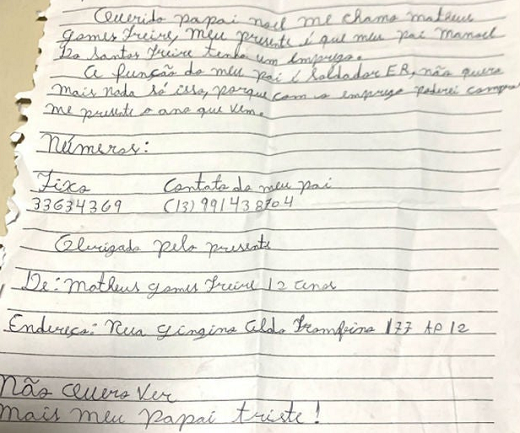 Querido papai noel me chamo matheus
gomes Freire, meu presente é que meu pai manoel
Do santos Freire tenha um emprego.
A função do meu pai é soldador ER, não quero
mais nada só isso, porque com o emprego poderei comprar
me presente o ano que vem.
Números:
Fixo Contato do meu pai
33634369 (13) 991438704
Obrigado pelo presente
De: Matheus gomes Freire 12 anos
Endereço: Rua Aldo 177 AP 12
Não quero ver
mais meu papai triste!